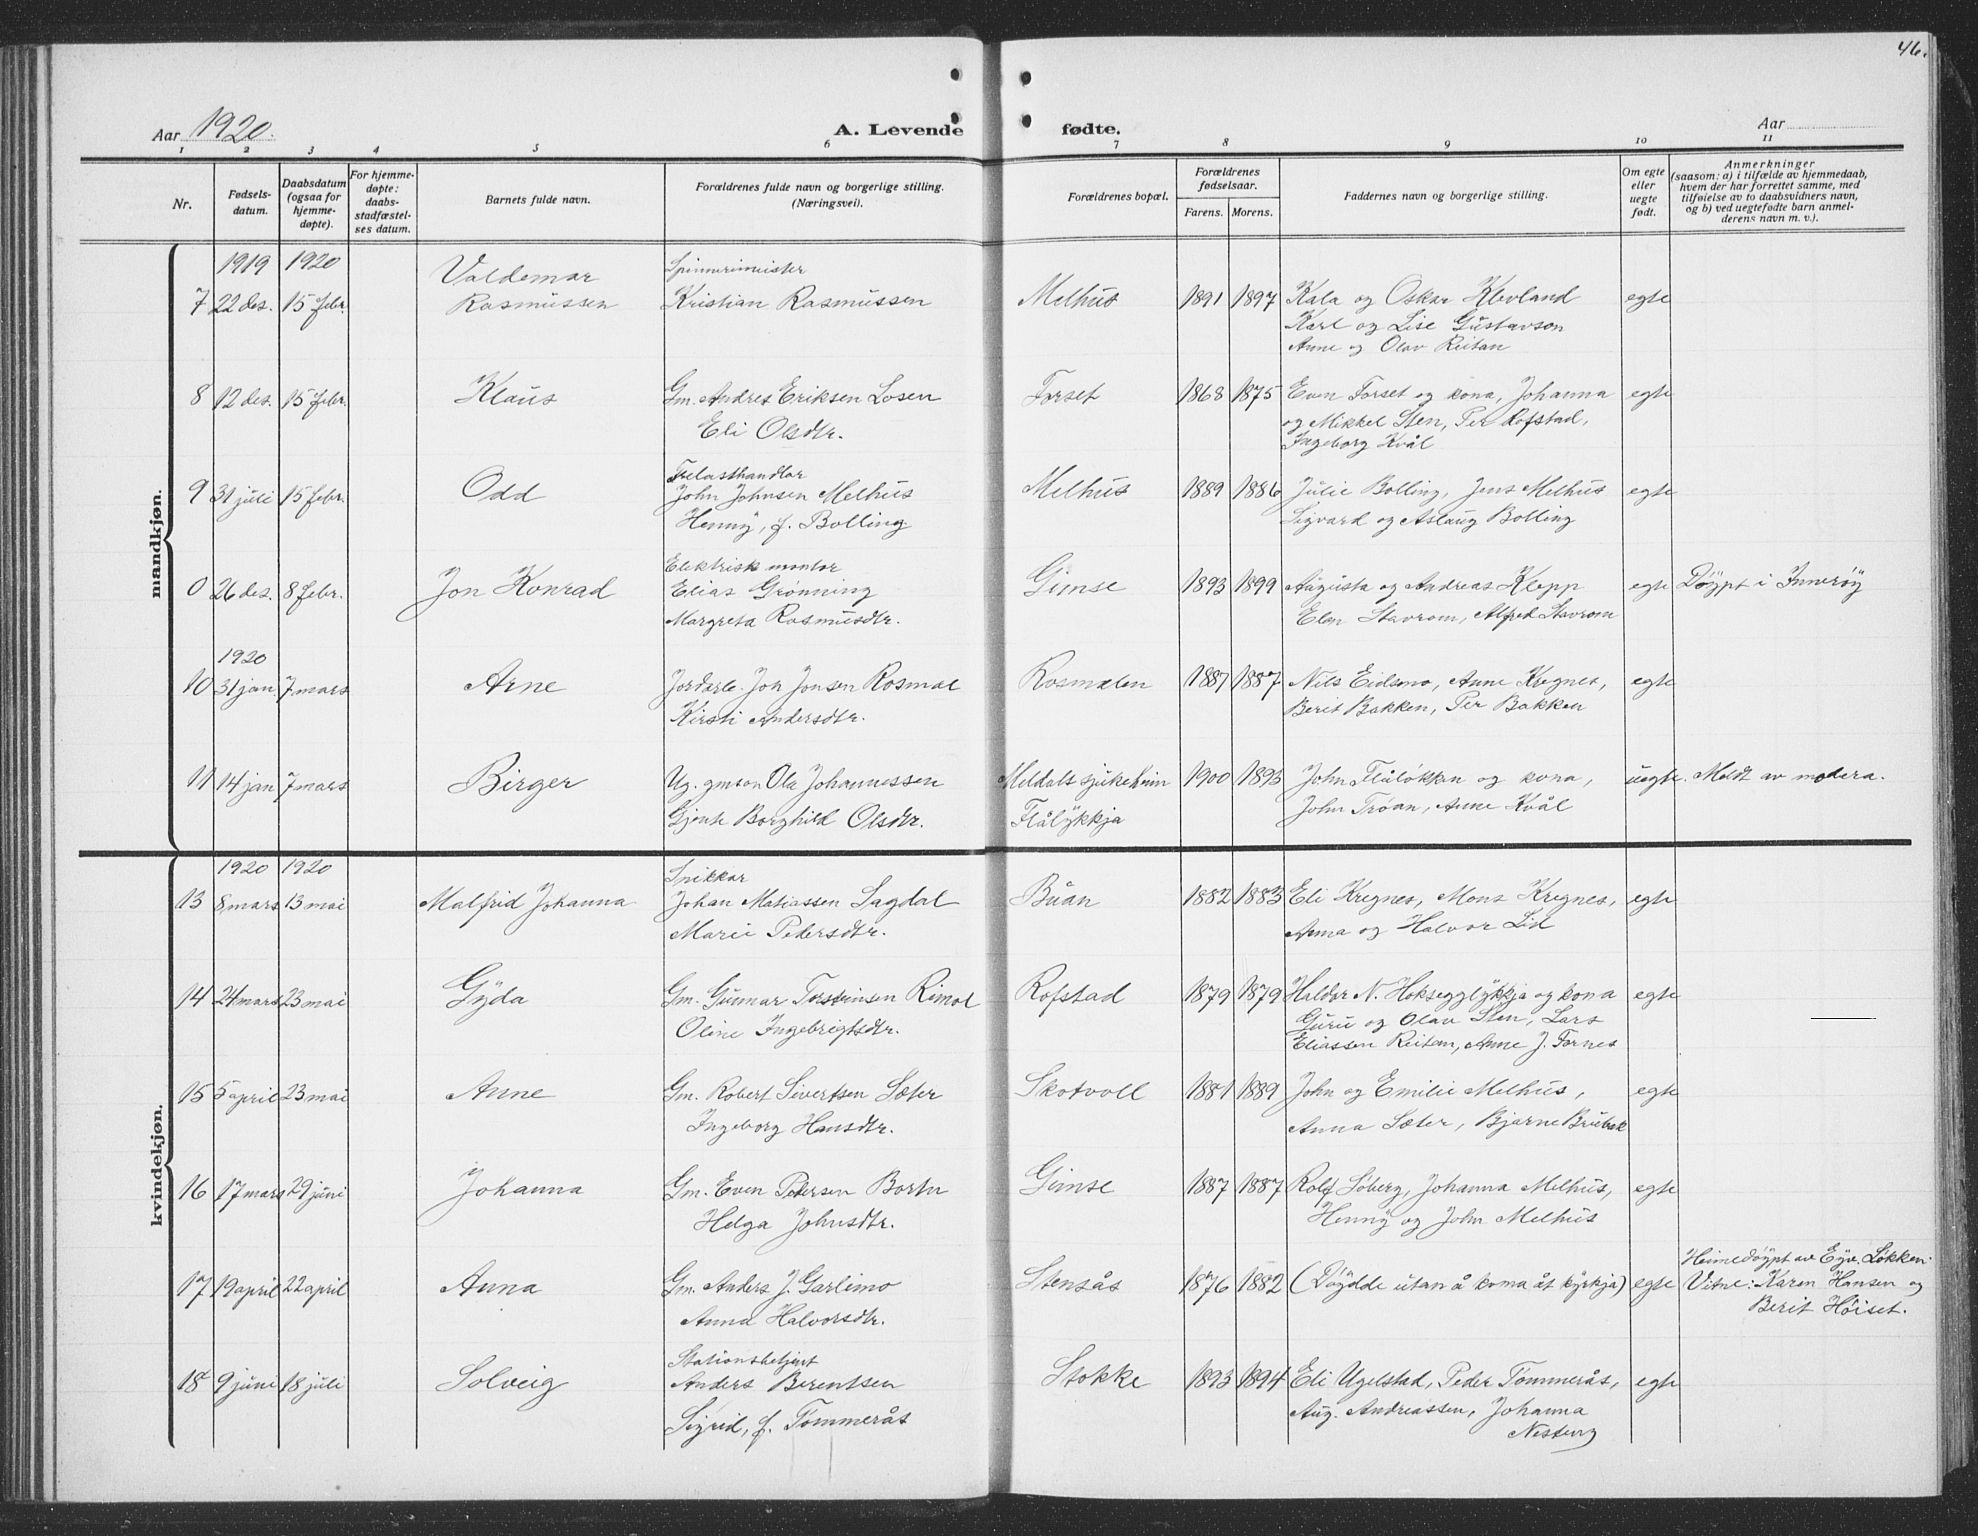 46.
Aar 1920.
A. Levende fødte.
Aar
1 2 3 4 5 6 7 8 9 10 11
Nr.
Fødsels-
datum.
Daabsdatum
(ogsaa for
hjemme-
døpte).
For hjemme-
døpte:
daabs-
stadfæstel-
ses datum.
Barnets fulde navn.
Forældrenes fulde navn og borgerlige stilling.
(Næringsvei).
Forældrenes bopæl.
Forældrenes
fødselsaar.
Farens. Morens.
Faddernes navn og borgerlige stilling.
Om egte
eller
uegte
født.
Anmerkninger
(saasom: a) i tilfælde av hjemmedaab,
hvem der har forrettet samme, med
tilføielse av to daabsvidners navn,
og b) ved uegtefødte barn anmel-
derens navn m. v.).
mandkjøn.
1919 1920 Valdemar Spinnerimeister
7 22 des. 15 febr. Rasmussen Kristian Rasmussen Melhus 1891 1897 Kala og Oskar Klevland egte
Karl og Lise Gustavson
Anne og Olav Reitan
8 12 des. 15 febr. Klaus Gm. Andres Eriksen Losen Forset 1868 1875 Even Forset og kona, Johanna egte
Eli Olsdtr. og Mikkel Sten, Per Rofstad,
Ingeborg Kvål
Trelasthandlar
9 31 juli 15 febr. Odd John Johnsen Melhus Melhus 1889 1886 Julie Bolling, Jens Melhus egte
Henny, f. Bolling Sigvard og Aslaug Bolling
Elektrisk montør
0 26 des. 8 febr. Jon Konrad Elias Grønning Gimse 1893 1899 Augusta og Andreas Klepp egte Døypt i Inderøy
Margreta Rasmusdtr. Elen Stavrom, Alfred Stavrom
1920
10 31 jan 7 mars Arne Jordarb. Joh Jonsen Rosmæl Rosmælen 1887 1887 Nils Eidsmo, Anne Kregnes, egte
Kirsti Andersdtr. Berit Bakken, Per Bakken
11 14 jan 7 mars Birger Ug. gmson Ola Johannessen Meldals sjukeheim 1900 1893 John Flåløkken og kona, uegte. Meldt av modera.
Gjente Borghild Olsdtr. Flålykkja John Trøan, Anne Kvål
kvindekjøn.
1920 1920 Snikkar
13 8 mars 13 mai Malfrid Johanna Johan Matiassen Sagdal Buan 1882 1883 Eli Kregnes, Mons Kregnes, egte
Marie Pedersdtr. Anna og Halvor Lid
14 24 mars 23 mai Gyda Gm. Gunnar Torsteinsen Rimol Rofstad 1879 1879 Haldor N. Hoksegglykkja og kona egte
Oline Ingebrigtsdtr. Guru og Olav Sten, Lars
Eliassen Reitan, Anne J. Fornes
15 5 april 23 mai Anne Gm. Robert Sivertsen Sæter Skotvoll 1881 1889 John og Emilie Melhus, egte
Ingeborg Hansdtr. Anna Sæter, Bjarne Brubak
16 17 mars 29 juni Johanna Gm. Even Petersen Borten Gimse 1887 1887 Rolf Søberg, Johanna Melhus, egte
Helga Johnsdtr. Henny og John Melhus
Heimedøypt av Eyv. Løkken.
17 19 april 22 april Anna Gm. Anders J. Garlimo Stensås 1876 1882 (Døydde utan å koma åt kyrkja) egte Vitne: Karen Hansen og
Anna Halvorsdtr. Berit Høiset.
Stationsbetjent
18 9 juni 18 juli Solveig Anders Berentsen Stokke 1893 1894 Eli Ugelstad, Peder Tømmerås, egte
Sigrid, f. Tømmerås Aug. Andreassen, Johanna